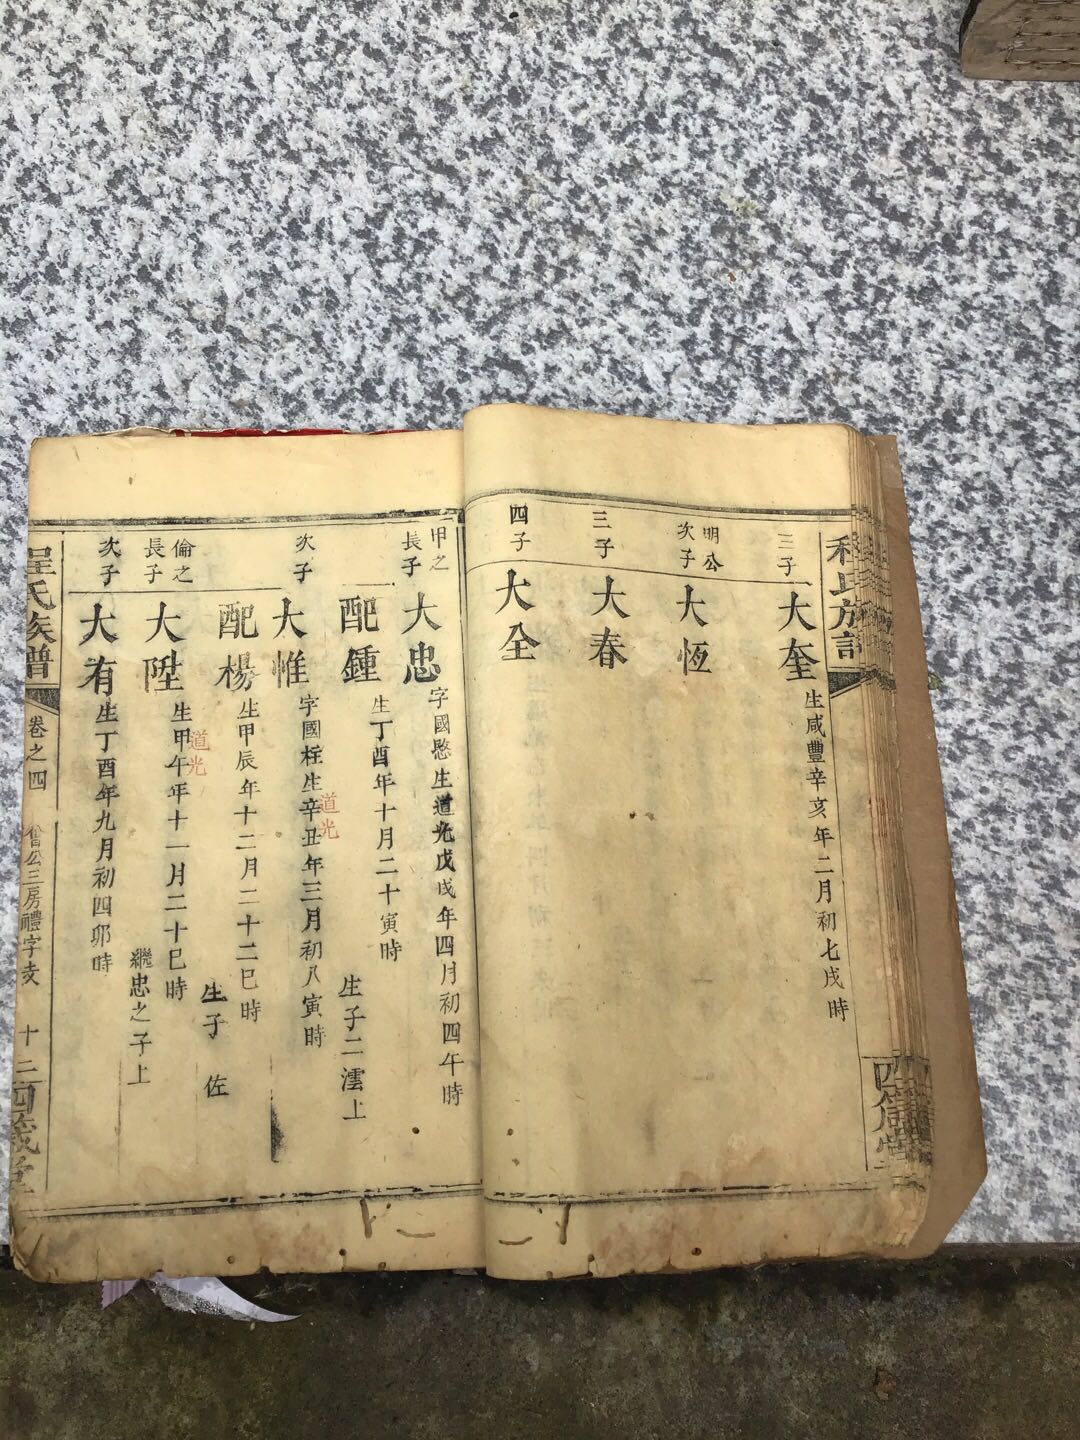 三子
大奎
生咸豐辛亥年二月初七戌時
明公
次子
大恆
三子
大春
四子
大全
甲之
長子
大忠
字國慜生道光戊戌年四月初四午時
配鍾
生丁酉年十月二十寅時
生子二澐上
次子
大惟
字國桂生辛丑年三月初八寅時
道光
配楊
生甲辰年十二月二十二巳時
生子 佐
倫之
長子
大陞
生甲午年十一月二十巳時
道光
繼忠之子上
次子
大有
生丁酉年九月初四卯時
程氏族譜
卷之四
公三房禮字支
十三
四義堂